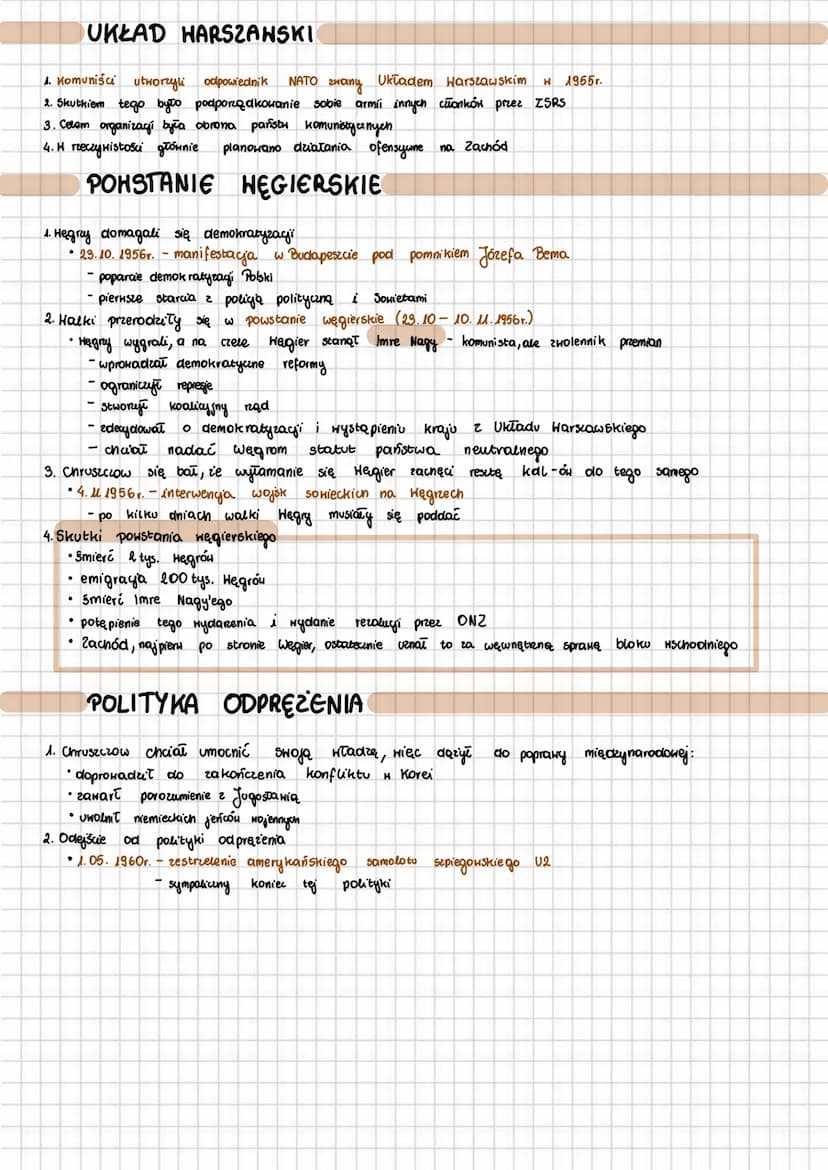 UKŁAD WARSZAWSKI
1. Komuniści utworzyli odpowiednik NATO zwany Układem Warszawskim w 1955r.
2. Skutkiem tego było podporządkowanie sobie armii innych członków przez ZSRS
3. Celem organizacji była obrona państw komunistycznych
4. W rzeczywistości głównie planowano działania ofensywne na Zachód
POWSTANIE WĘGIERSKIE
1. Węgrzy domagali się demokratyzacji
• 23.10.1956r. - manifestacja w Budapeszcie pod pomnikiem Józefa Bema
- poparcie demokratyzacji Polski
- pierwsze starcia z policją polityczną i Sowietami
2. Walki przerodziły się w powstanie węgierskie (23.10 - 10.11.1956r.)
• Węgrzy wygrali, a na czele Węgier stanął Imre Nagy - komunista, ale zwolennik przemian
- wprowadzał demokratyczne reformy
- ograniczył represje
- stworzył koalicyjny rząd
- zdecydował o demokratyzacji i wystąpieniu kraju z Układu Warszawskiego
- chciał nadać Węgrom statut państwa neutralnego
3. Chruszczow się bał, że wyłamanie się Węgier zachęci resztę kdl-ów do tego samego
• 4.11.1956r. - interwencja wojsk sowieckich na Węgrzech
- po kilku dniach walki Węgry musiały się poddać
4. Skutki powstania węgierskiego
• Śmierć 2 tys. Węgrów
• emigracja 200 tys. Węgrów
• Śmierć Imre Nagy'ego
• potępienie tego wydarzenia i wydanie rezolucji przez ONZ
• Zachód, najpierw po stronie Węgier, ostatecznie uznał to za wewnętrzną sprawę bloku wschodniego
POLITYKA ODPRĘŻENIA
1. Chruszczow chciał umocnić swoją władzę, więc dążył do poprawy międzynarodowej:
• doprowadził do zakończenia konfliktu w Korei
• zawarł porozumienie z Jugosławią
• uwolnił niemieckich jeńców wojennych
2. Odejście od polityki odprężenia
• 1.05.1960r. - zestrzelenie amerykańskiego samolotu szpiegowskiego U2
- sympoliczny koniec tej polityki